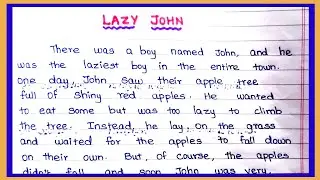 LAZY JOHN
There was a boy named John, and he
was the laziest boy in the entire town.
one day, John saw their apple tree
full of shiny red apples. He wanted
to eat some but was too lazy to climb
the tree. Instead, he lay on the grass
and waited for the apples to fall down
on their own. But, of course, the apples
didn't fall and soon John was very